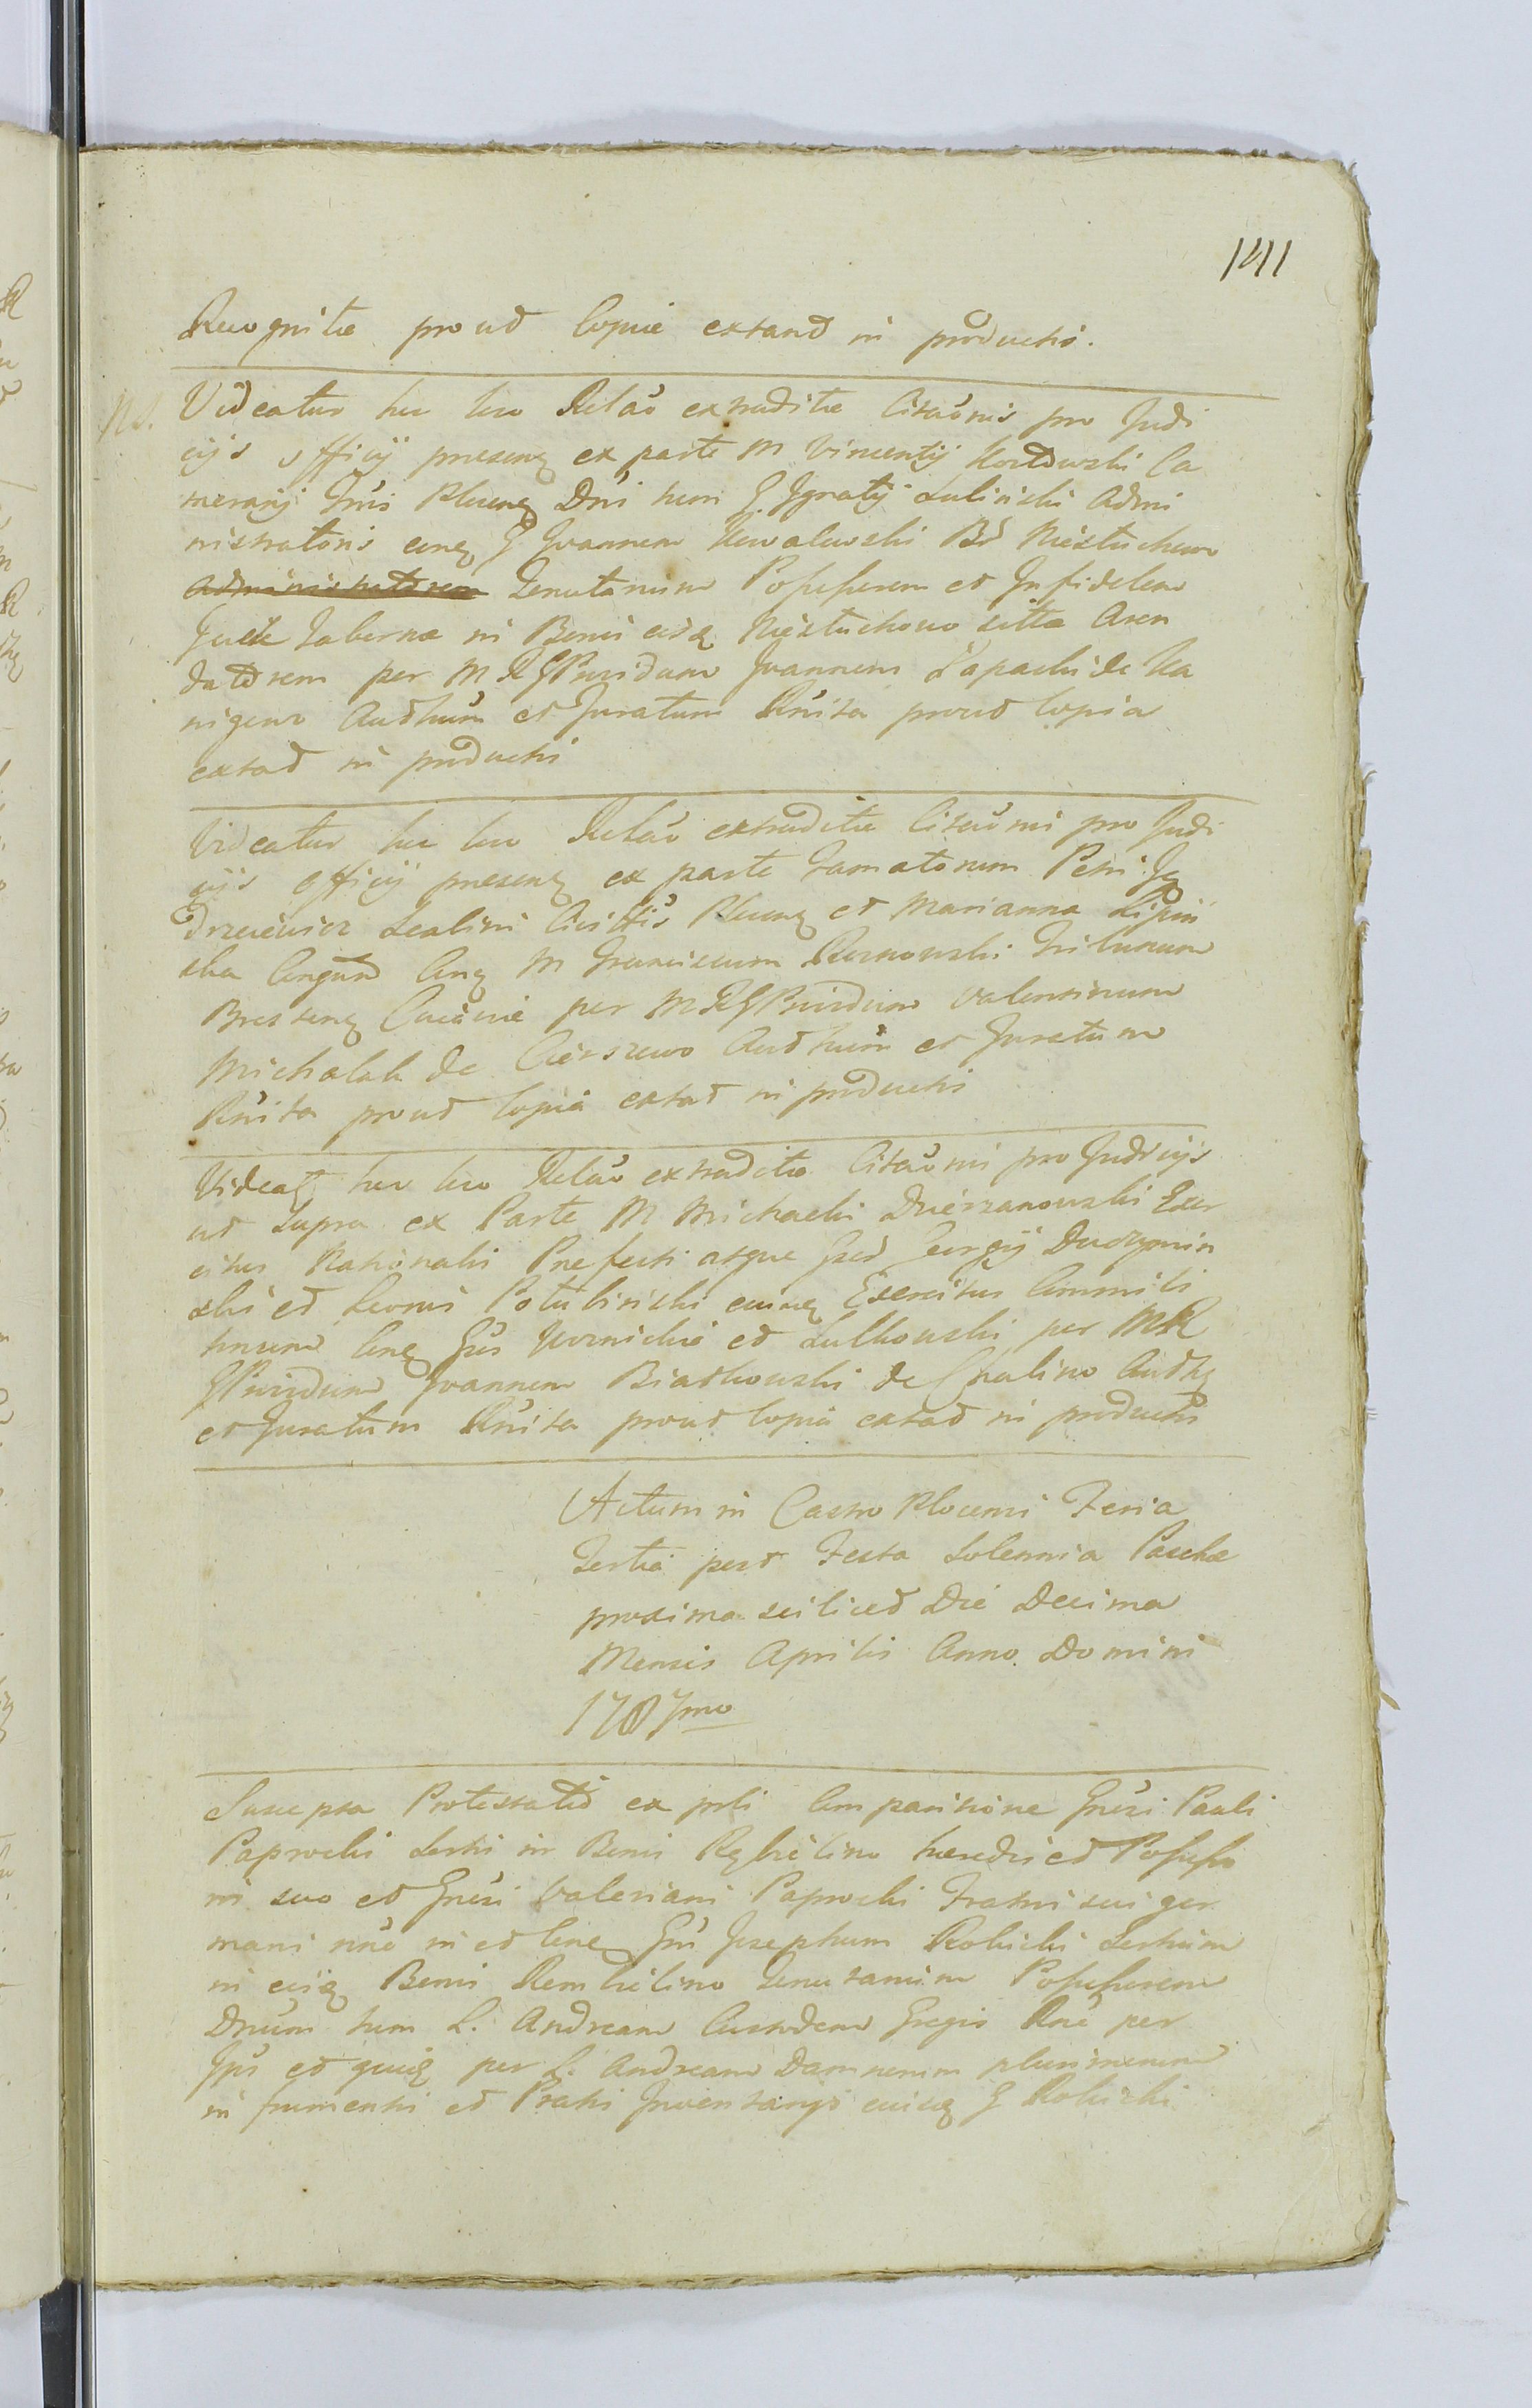 141
Recognita prout Copia extant in productis.
NB. Videatur hic loco Relaõ extraditæ Citaõnis pro Judi
cijs officij præsenz ex parte M Vincentij Ca
merarij Tris Plocenz Dni tum G. Ignatij Lubinski Admi
nistratoris conz G Joannem Kowalewski Bo Niestuchowo
Administratorem Tenutarium Possessorem et Infidelem
Tabernæ in Bonis eisz Niestuchowo sittæ Aren
datorem per M R G Prvidum Joannem Łapacki de Ka
nigowo Authum et Juratum Rnita prout Copia
extat in productis
Videatur hic loco Relaõ extraditæ Citaõnis pro Judi
cijs officij præsenz ex parte Famatorum PetriJę
drzeiewicz Scabini Civittis Plocenz et Marianna Lipin
ska Congum Conz M Franciscum Tribunum
Brestenz Cujaviæ per M R G Prvidum Valentinum
Michalak de Cierszewo Authum et Juratum
Rnita prout Copia extat in productis
Videatz hic loco Relaõ extraditæ Citaõnis pro Judicijs
ut Supra ex Parte M Michaelis Dzierzanowski Exer
citus Nationalis Præfecti atque Gsod Georgij Duczymin
ski et Leonis Potulinski ejusz Exercitus Commili
tonum Conz Gsos et Sulkowski per MR
G Prvidum Joannem Białkowski de Chalino Authz
et Juratum Rnita prout Copia extat in productis
Actum in Castro Plocensi Feria
Tertia post Festa Solennia Paschæ
proxima scilicet Die Decima
Mensis Aprilis Anno Domini
1787mo
Suscepta Protestatio ex prsli Comparitione Gnrsi Pauli
Paprocki Sortis in Bonis Rębielino hæredis et Possesso
ris suo et Gnrsi Valeriani Paprocki Fratris sui ger
mani nnoe in et Conz Gn Josephum Robicki Sortium
in eisz Bonis Rembielino Tenutarium Possessorem
Dnum tum L. Andream Custodem Gregis Rne per
Ips et quidz per L. Andream Damnorum plurimorum
in frumentis et Pratis Inventarijs eiusz G Robicki